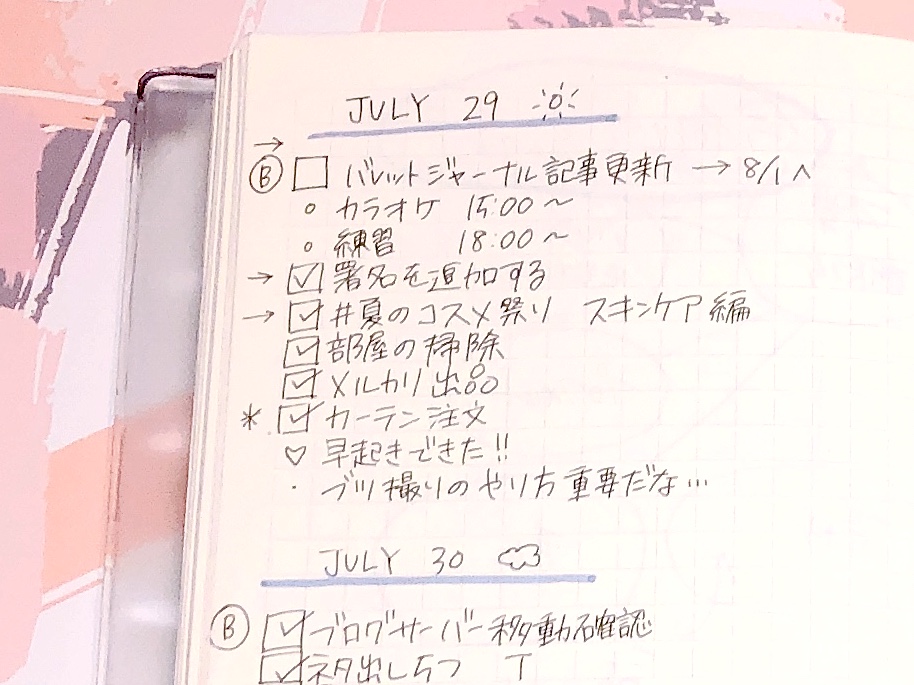 JULY 29
→
Ⓑ □ バレットジャーナル記事更新 → 8/1へ
○ カラオケ 15:00〜
○ 練習 18:00〜
→ ☑ 署名を追加する
→ ☑ #夏のコスメ祭り スキンケア編
☑ 部屋の掃除
☑ メルカリ出品
* ☑ カーテン注文
♡ 早起きできた!!
・ ブツ撮りのやり方重要だな…
JULY 30
Ⓑ ☑ ブログサーバー移動確認
☑ ネタ出し5つ